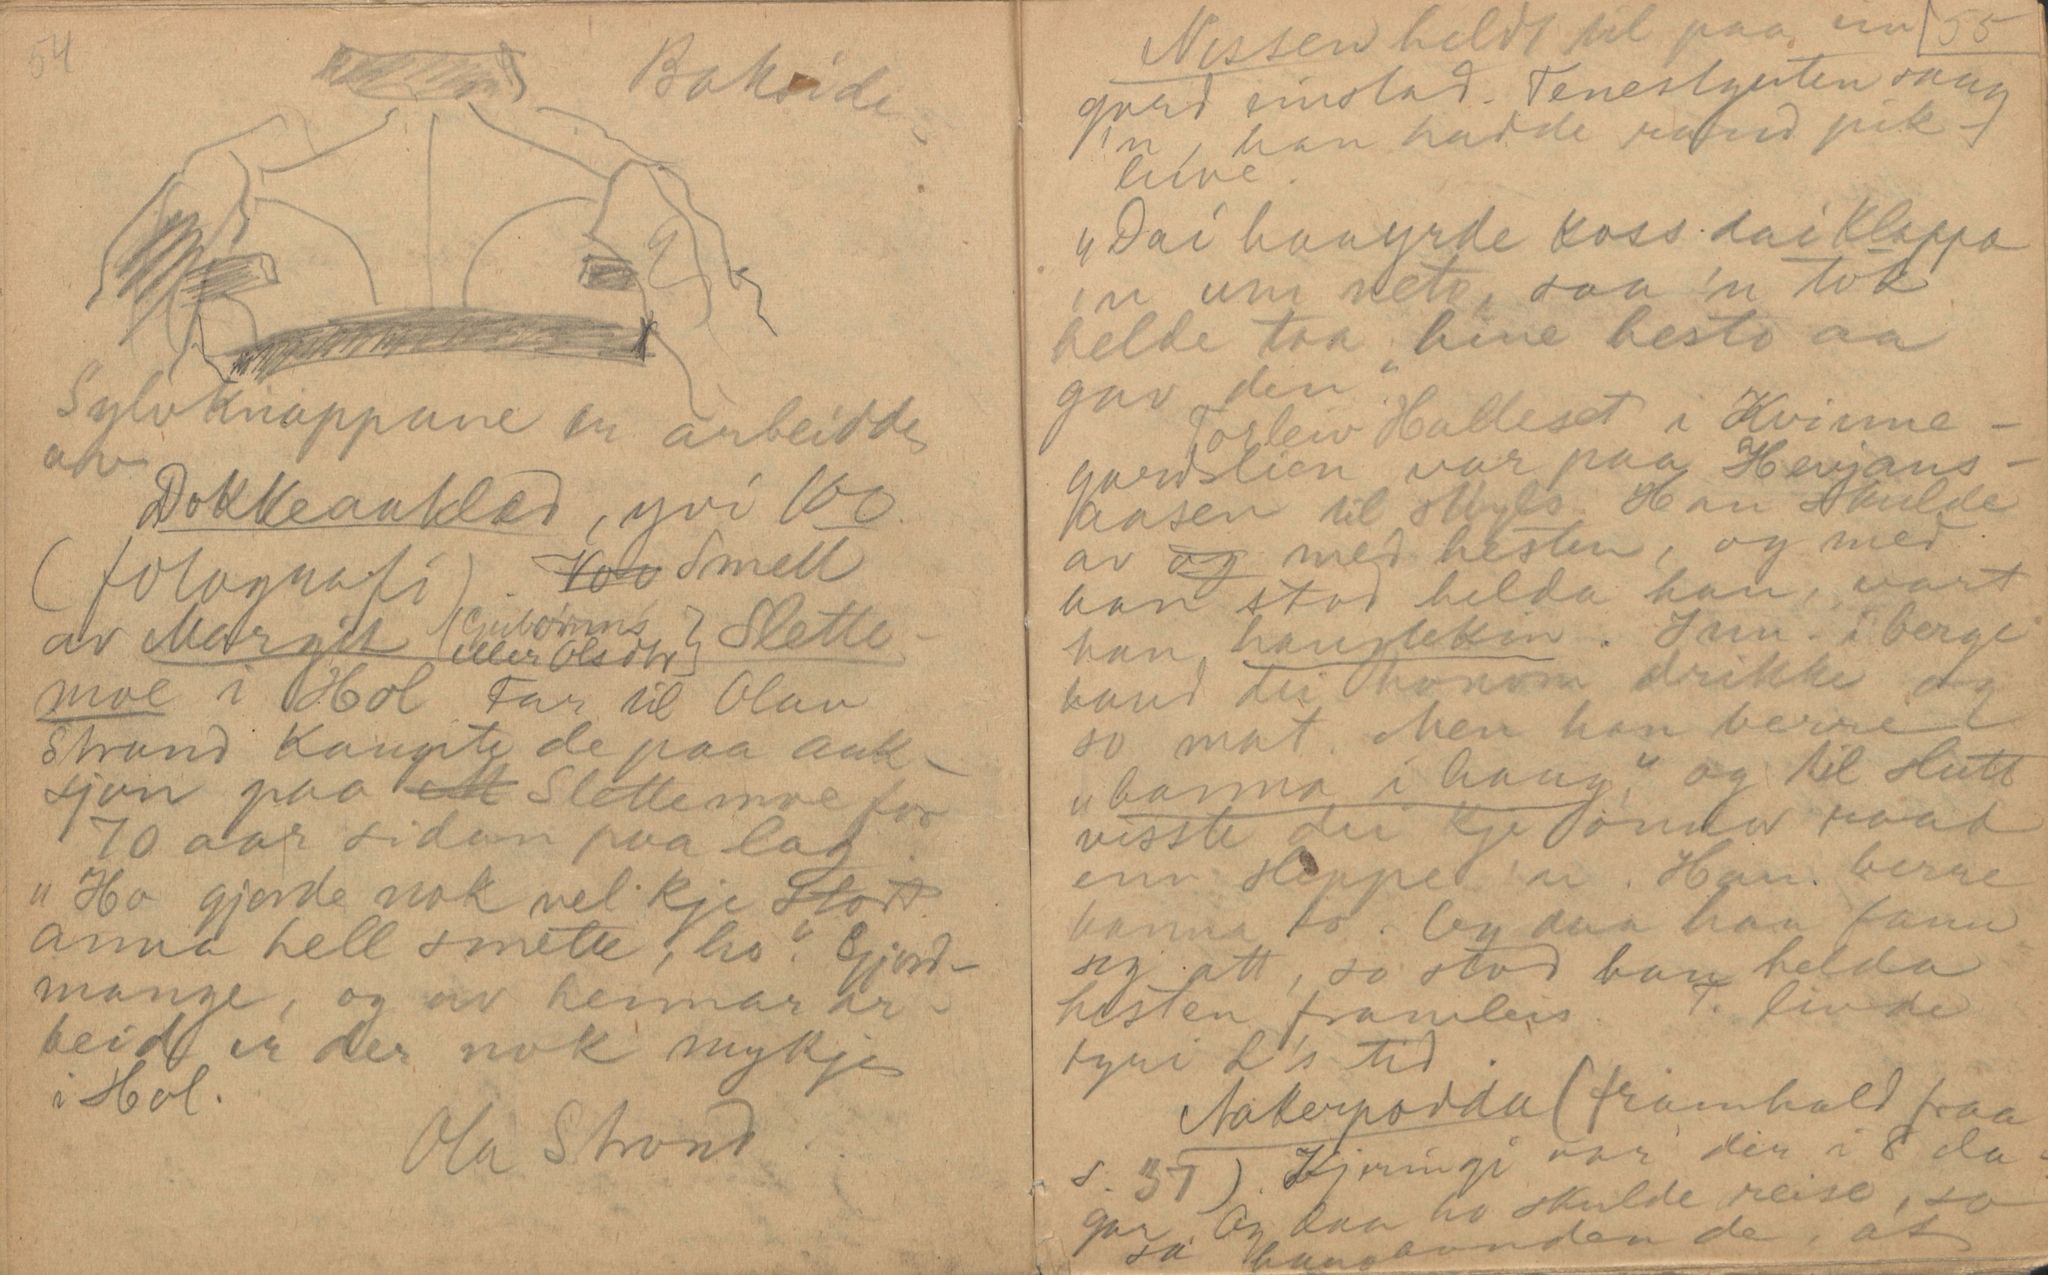 54
Bakside
Sylvknappane er arbeidde
av
Dokkeaaklæd, yvi 100
(fotografi). Smell
av Margit (Gutorms eller Olsdtr) Slette-
moe i Hol Far til Olav
Strand kaupte de paa auk-
sjon paa Slettemoe for
70 aar sidan paa lag.
"Ho gjorde nok vel kje stort
anna hell smette, ho". Gjord
mange, og av heimar ar-
beid er der nok mykje
i Hol.
Ola Strand
55
Nissen heldt til paa ein
gard einstad. Tenestguten saag
'n, han hadde raud pik-
luve.
"Dai haayrde koss dai klappa
'n um neto, saa 'n tok
helde taa hine hesto aa
gav den"
Torleiv Halleset i Kvinne-
gardslien var paa Hevjans-
aasen til skyls. Han skulde
av og med hesten, og med
han stod helda han, vart
han haugtekin. Inn i berge
baud dei honom drikke og
so mat. Men han berre
"banna i haug," og til slutt
visste dei kje onnor raad
enn sleppe 'n. Han berre
banna so. Og daa han fann
seg att, so stod han helda
hesten framleis. T. livde
fyri L's tid.
Nakerpodda (framhald fraa
s. 37). Kjeringi var der i 8 da-
gar Og daa ho skulde reise, so
sa haugbonden de, at